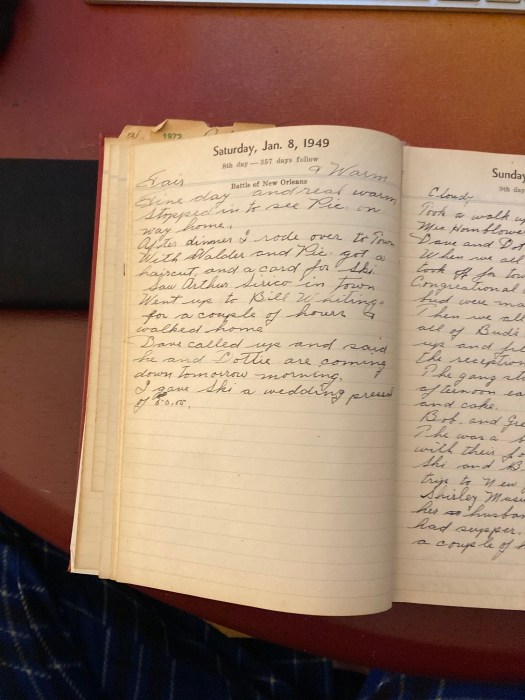 1973
Saturday, Jan. 8, 1949
8th day — 357 days follow
Battle of New Orleans
Fair & Warm
Fine day and real warm
Stopped in to see Pic on
way home.
After dinner I rode over to Town
With Walder and Pic. got a
haircut, and a card for Ski.
Saw Arthur Sirico in town
Went up to Bill Whitings
for a couple of hours &
walked home
Dave called up and said
he and Dottie are coming
down tomorrow morning.
I gave Ski a wedding present
of
Sunday
9th day
Cloudy
Took a walk u
Mrs Hornblower
Dave and Dot
When we all
took off for tow
Congregational
bud were ma
Then we all
all of Buds
ups and
the reception
The gang al
afternoon ea
and cake.
Bob. and Gre
The was a b
with their fo
Ski and B
trip to New
Shirley Mas
her husban
had supper.
a couple of h